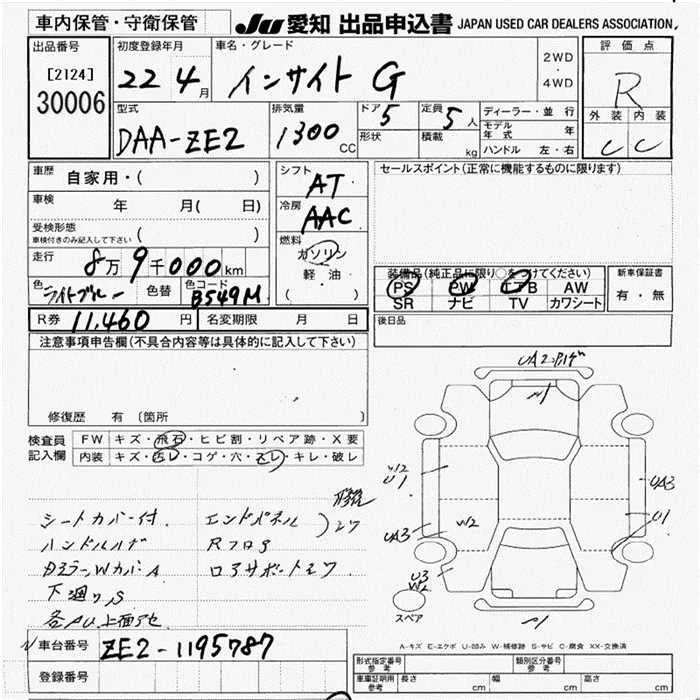 車内保管・守衛保管
JU 愛知 出品申込書 JAPAN USED CAR DEALERS ASSOCIATION
出品番号
[2124]
30006
初度登録年月
22 4月
車名・グレード
インサイト G
2WD
・
4WD
評価点
R
外装 内装
C C
型式
DAA-ZE2
排気量
1300 CC
ドア 5
形状
定員 5人
積載 kg
ディーラー・並行
モデル年式 年
ハンドル 左・右
車歴 自家用・( )
車検 年 月( 日)
受検形態
車検付きのみ記入して下さい ( )
走行 8万9千000km
色 ライトブルー 色替 色コード B549M
R券 11,460 円 名変期限 月 日
シフト
AT
冷房
AAC
燃料
ガソリン
軽・油
( )
セールスポイント(正常に機能するものに限ります)
装備品(純正品に限り○をつけてください)
PS PW エアB AW
SR ナビ TV カワシート
新車保証書
有・無
後日品
注意事項申告欄(不具合内容等は具体的に記入して下さい)
修復歴 有 〔箇所
検査員記入欄
FW キズ・飛石・ヒビ割・リペア跡・X要
内装 キズ・汚レ・コゲ・穴・スレ・キレ・破レ
シートカバー付
ハンドルハゲ
下廻りS
エンドパネル
Rフロア
UA3
U1
UA3
U1
W2
U3
W2
スペア
A-キズ E-エクボ U-凹み W-補修跡 S-サビ C-腐食 XX-交換済
車台番号 ZE2-1195787
登録番号
形式指定番号 参考
類別区分番号 参考
車庫証明用 参考 長さ cm 幅 cm 高さ cm